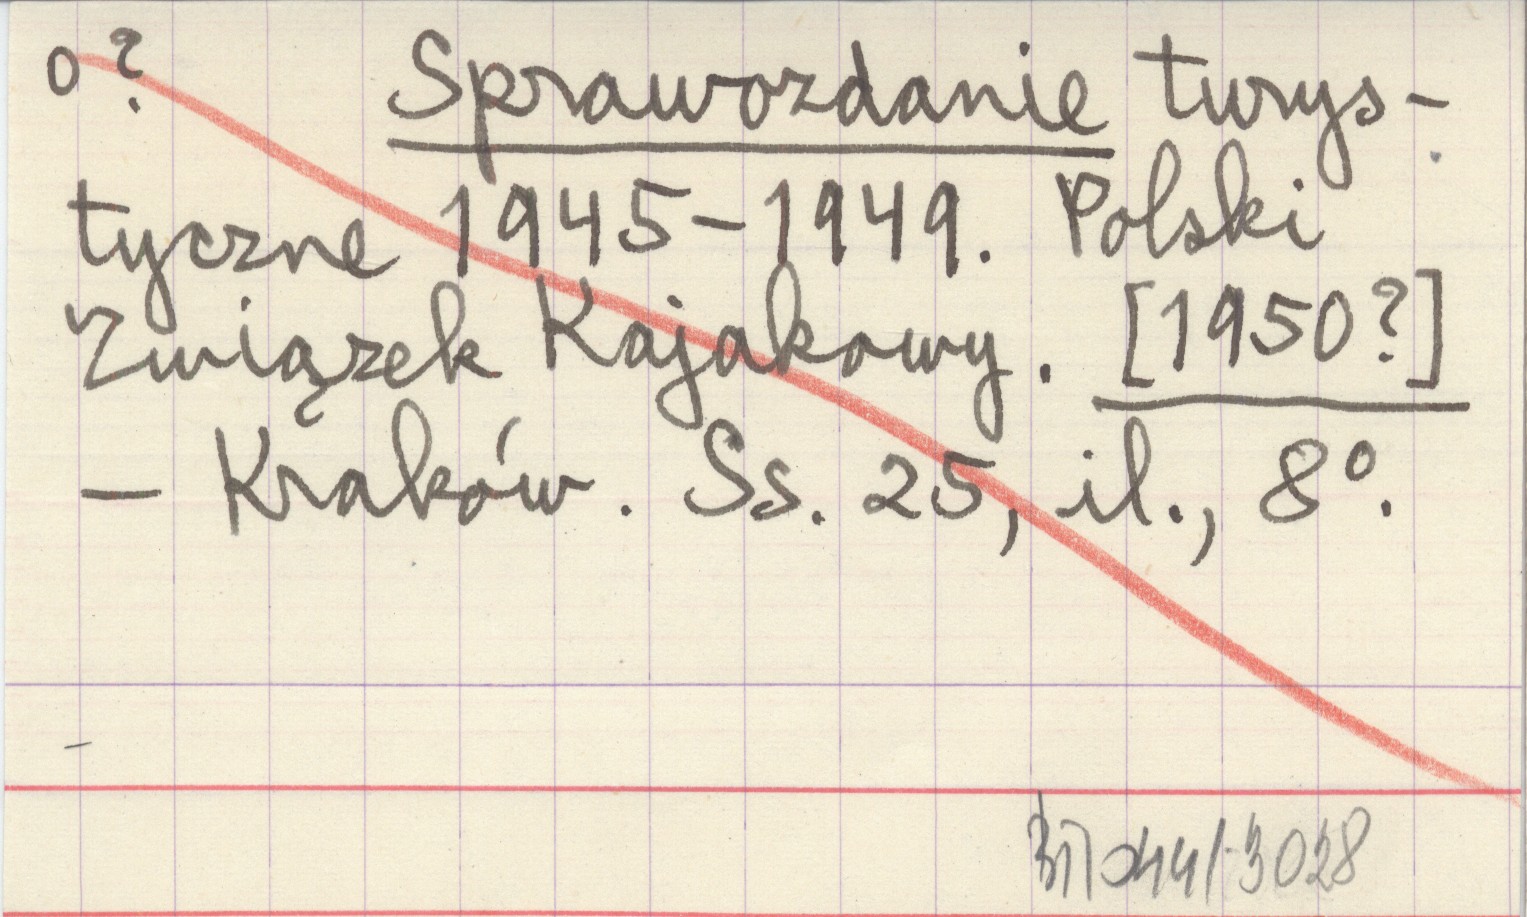 o ? Sprawozdanie turys-
tyczne 1945-1949. Polski
Związek Kajakowy. [1950?]
— Kraków. Ss. 25, il., 8°.
3028